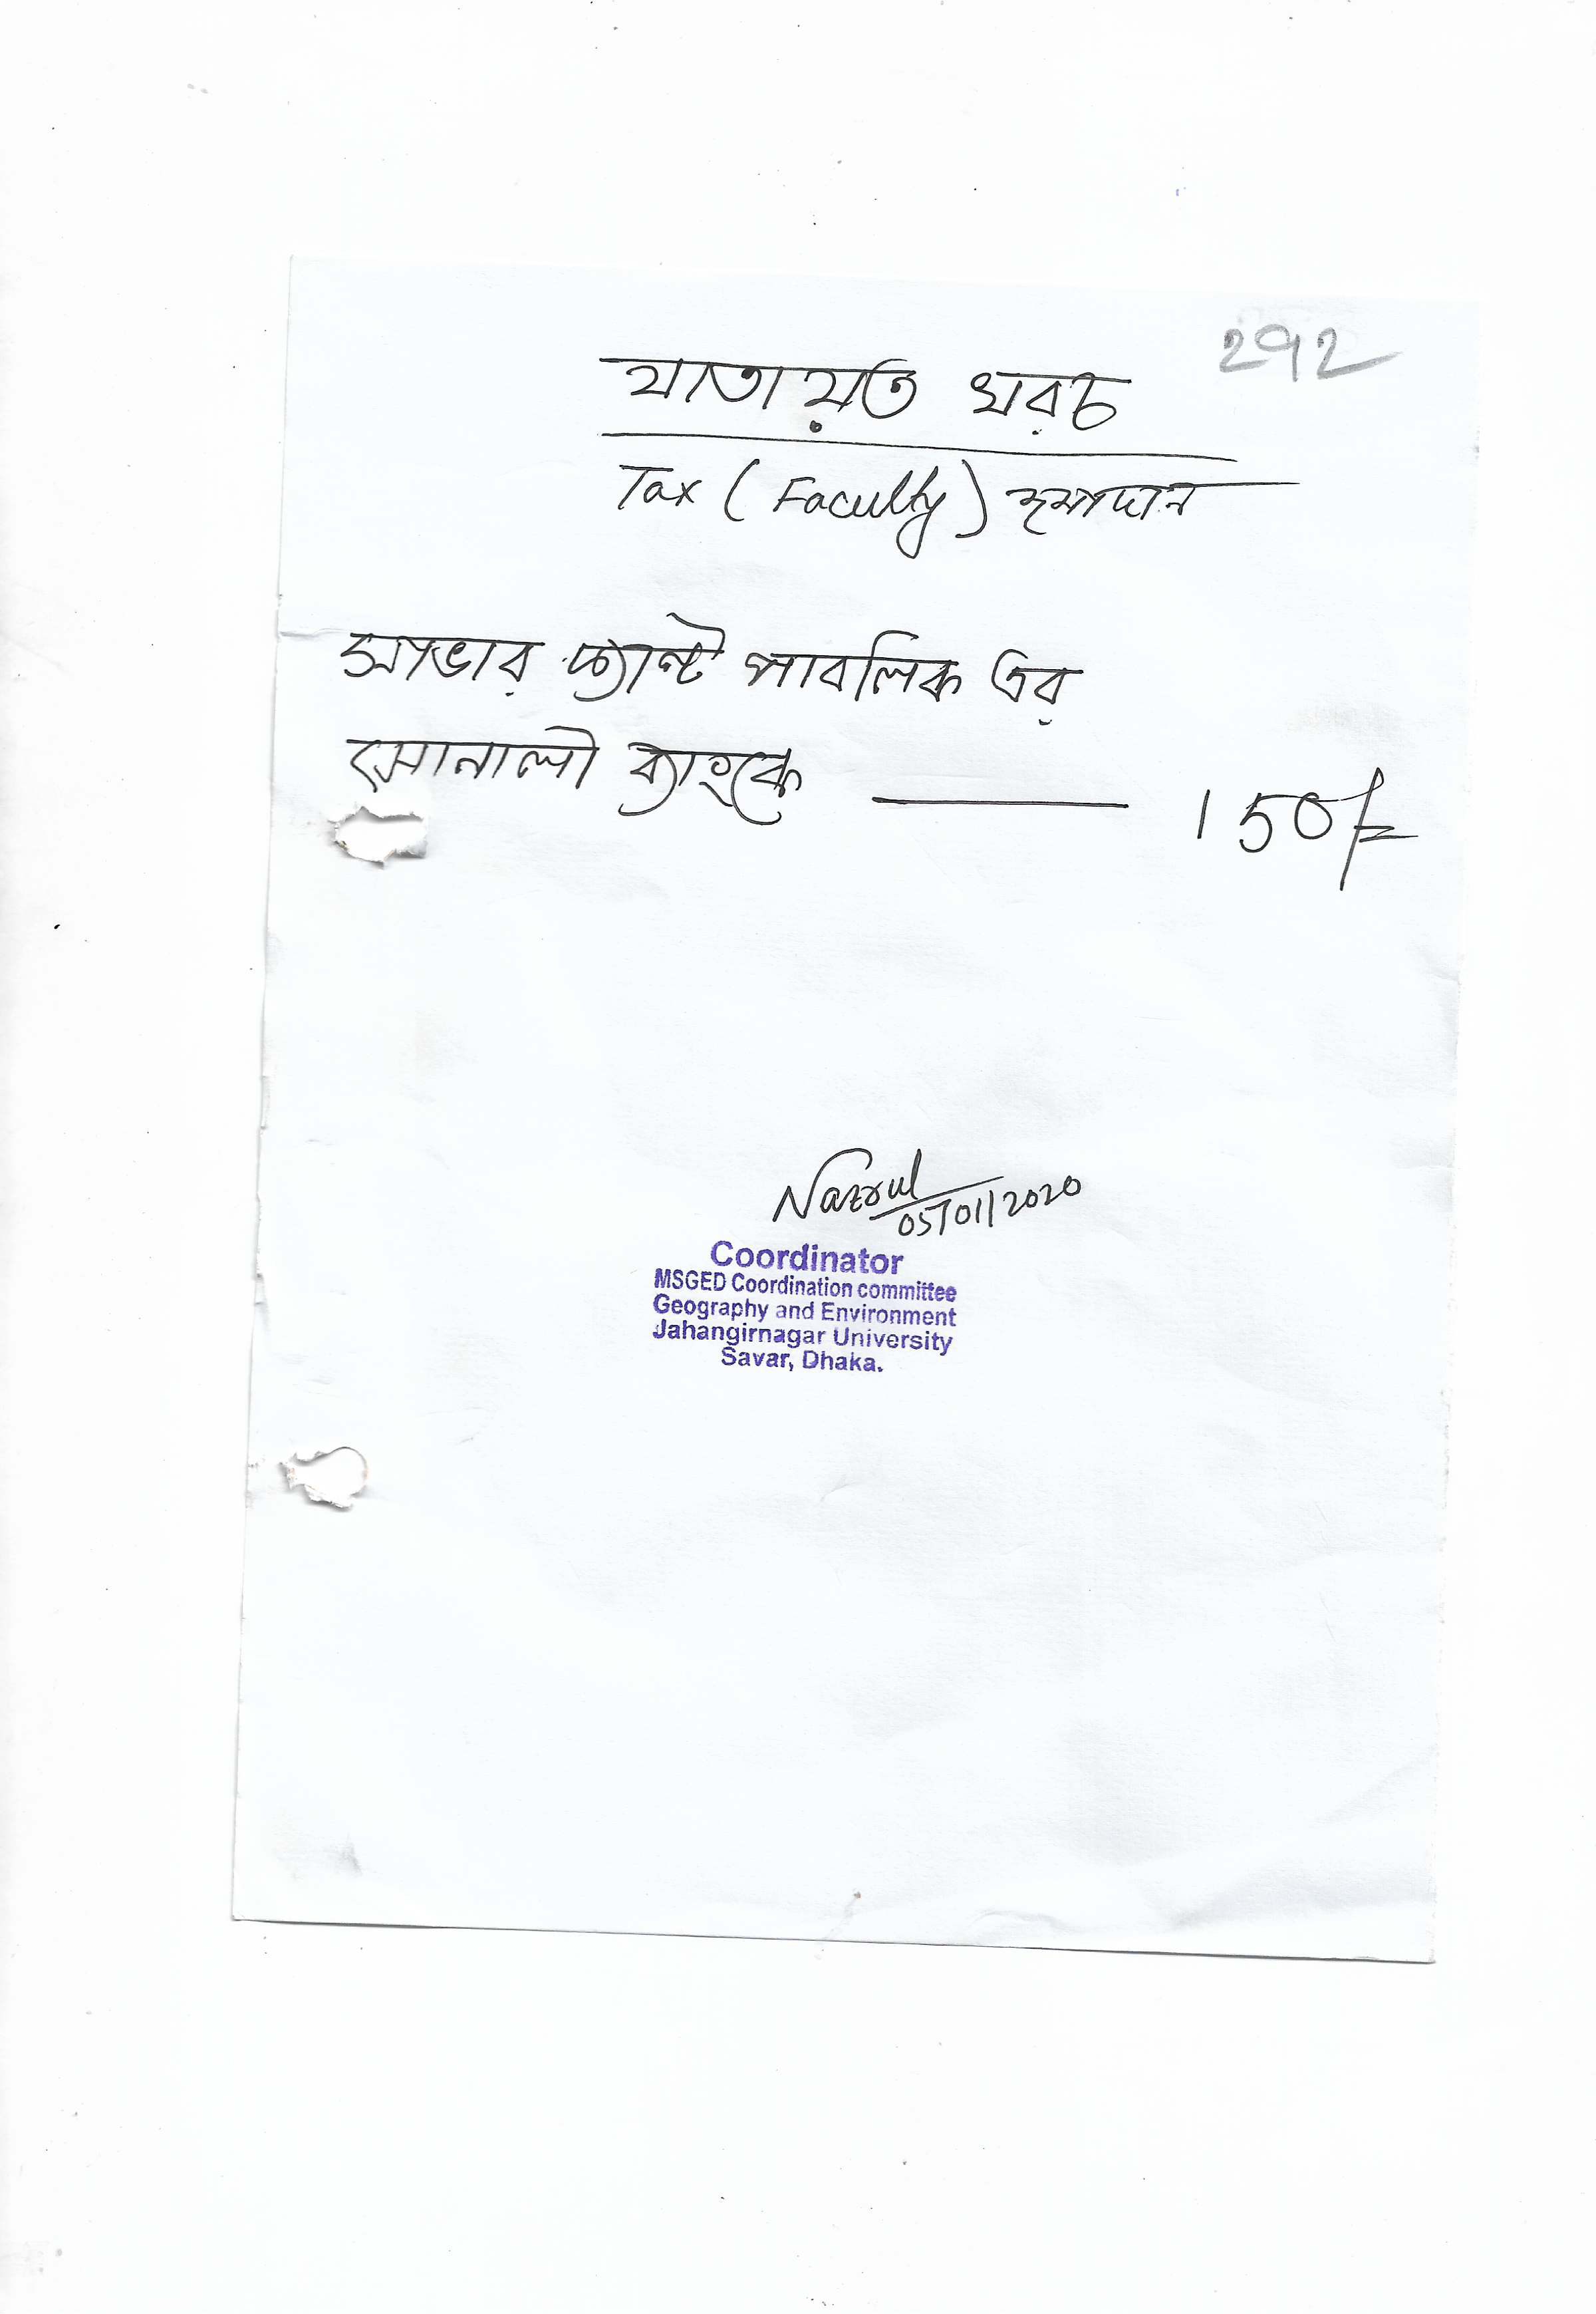 ২৭২
যাতায়ত খরচ
Tax (Faculty) জমাদান
সাভার ক্যান্ট পাবলিক এর
সোনালী ব্যাংকে ——— 150/=
Nazrul
05/01/2020
Coordinator
MSGED Coordination committee
Geography and Environment
Jahangirnagar University
Savar, Dhaka.